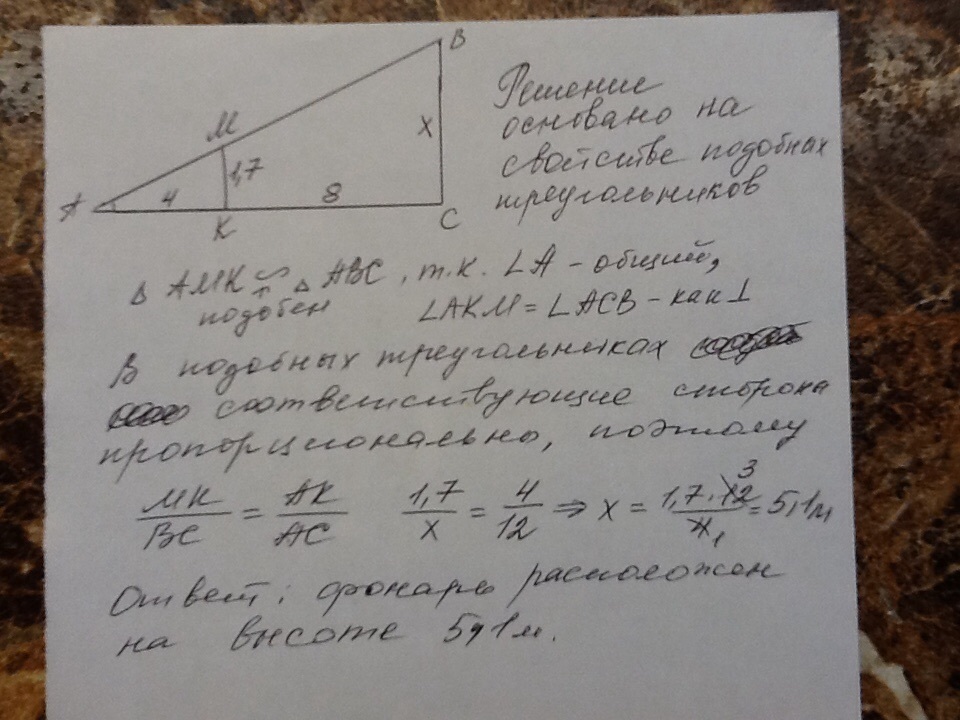 B
M
x
1,7
A
4
8
K
C
Решение
основано на
свойстве подобных
треугольников
Δ AMK ∽ Δ ABC, т.к. ∠A - общий,
↑
подобен
∠AKM = ∠ACB - как ⊥
В подобных треугольниках
соответствующие сторона
пропорциональны, поэтому
MK/BC = AK/AC 1,7/x = 4/12 ⇒ x = 1,7·12 3/4 1 = 5,1м
Ответ: фонарь расположен
на высоте 5,1м.